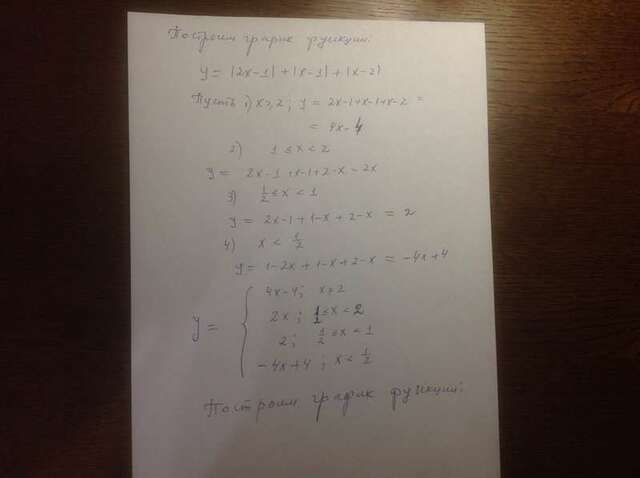 Построим график функции:
y = |2x-1| + |x-1| + |x-2|
Пусть 1) x ≥ 2; y = 2x-1+x-1+x-2 =
= 4x-4
2) 1 ≤ x < 2
y = 2x-1+x-1+2-x-2x
3) 1/2 ≤ x < 1
y = 2x-1+1-x+2-x = 2
4) x < 1/2
y = 1-2x+1-x+2-x = -4x+4
y = { 4x-4; x ≥ 2
2x; 1 ≤ x < 2
2; 1/2 ≤ x < 1
-4x+4; x < 1/2
Построим график функции: